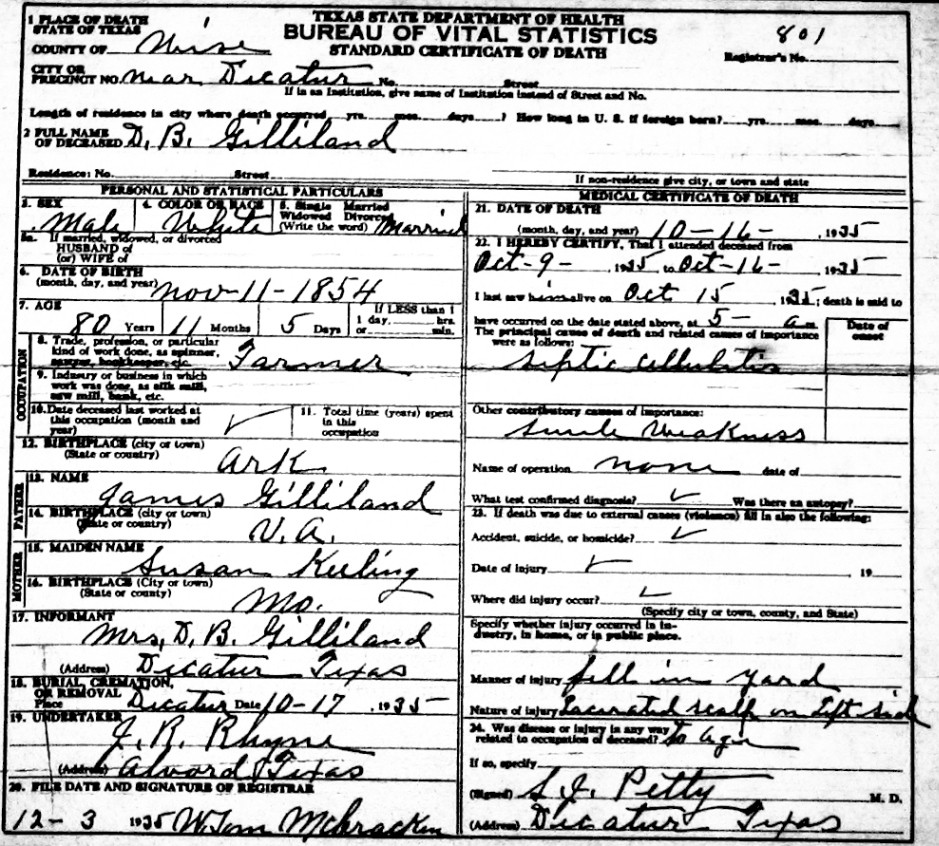 TEXAS STATE DEPARTMENT OF HEALTH
BUREAU OF VITAL STATISTICS
STANDARD CERTIFICATE OF DEATH
801
Registrar's No.
1 PLACE OF DEATH
STATE OF TEXAS
COUNTY OF Wise
CITY OR
PRECINCT NO. near Decatur No. Street
If in an Institution, give name of Institution instead of Street and No.
Length of residence in city where death occurred yrs. mos. days ? How long in U. S. if foreign born? yrs. mos. days
2 FULL NAME
OF DECEASED D. B. Gilliland
Residence: No. Street If non-residence give city, or town and state
PERSONAL AND STATISTICAL PARTICULARS
3. SEX 4. COLOR OR RACE 5. Single Married
Widowed Divorced
(Write the word)
Male White Married
5a. If married, widowed, or divorced
HUSBAND of
(or) WIFE of
6. DATE OF BIRTH
(month, day, and year) Nov-11-1854
7. AGE If LESS than 1
80 Years 11 Months 5 Days 1 day, hrs.
or min.
OCCUPATION
8. Trade, profession, or particular
kind of work done, as spinner,
sawyer, bookkeeper, etc. Farmer
9. Industry or business in which
work was done, as silk mill,
saw mill, bank, etc.
10. Date deceased last worked at
this occupation (month and
year) ✓
11. Total time (years) spent
in this
occupation
12. BIRTHPLACE (city or town)
(State or country) Ark.
FATHER
13. NAME
James Gilliland
14. BIRTHPLACE (city or town)
(State or country)
V.A.
MOTHER
15. MAIDEN NAME
Susan Keeling
16. BIRTHPLACE (City or town)
(State or country)
Mo.
17. INFORMANT
Mrs. D. B. Gilliland
(Address) Decatur Texas
18. BURIAL, CREMATION,
OR REMOVAL
Place Decatur Date 10-17 , 1935
19. UNDERTAKER
J. R. Rhyne
(Address) Alvord Texas
20. FILE DATE AND SIGNATURE OF REGISTRAR
12-3 1935 W. Tom McCracken
MEDICAL CERTIFICATE OF DEATH
21. DATE OF DEATH
(month, day, and year) 10-16- , 1935
22. I HEREBY CERTIFY, That I attended deceased from
Oct-9- , 1935 to Oct-16- , 1935
I last saw him alive on Oct 15 1935; death is said to
have occurred on the date stated above, at 5- a m.
The principal cause of death and related causes of importance
were as follows:
Date of
onset
Septic cellulitis
Other contributory causes of importance:
Senile Weakness
Name of operation none date of
What test confirmed diagnosis? ✓ Was there an autopsy?
23. If death was due to external causes (violence) fill in also the following:
Accident, suicide, or homicide? ✓
Date of injury ✓ 19
Where did injury occur? ✓
(Specify city or town, county, and State)
Specify whether injury occurred in in-
dustry, in home, or in public place.
Manner of injury fell in yard
Nature of injury Lacerated scalp on Left side
24. Was disease or injury in any way
related to occupation of deceased?
If so, specify
(Signed) S. J. Petty M. D.
(Address) Decatur Texas